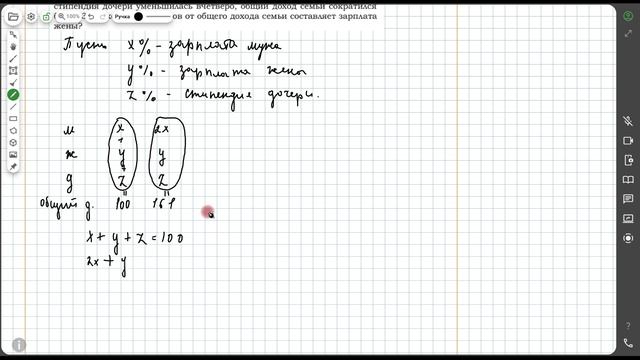 стипендия дочери уменьшилась вчетверо, общий доход семьи сократился
от общего дохода семьи составляет зарплата
жены?
120%
Ручка
Пусть x% - зарплата мужа
y% - зарплата жены
z% - стипендия дочери.
м x 2x
+
ж y y
+
д z z
общий д. 100 161
x + y + z = 100
2x + y